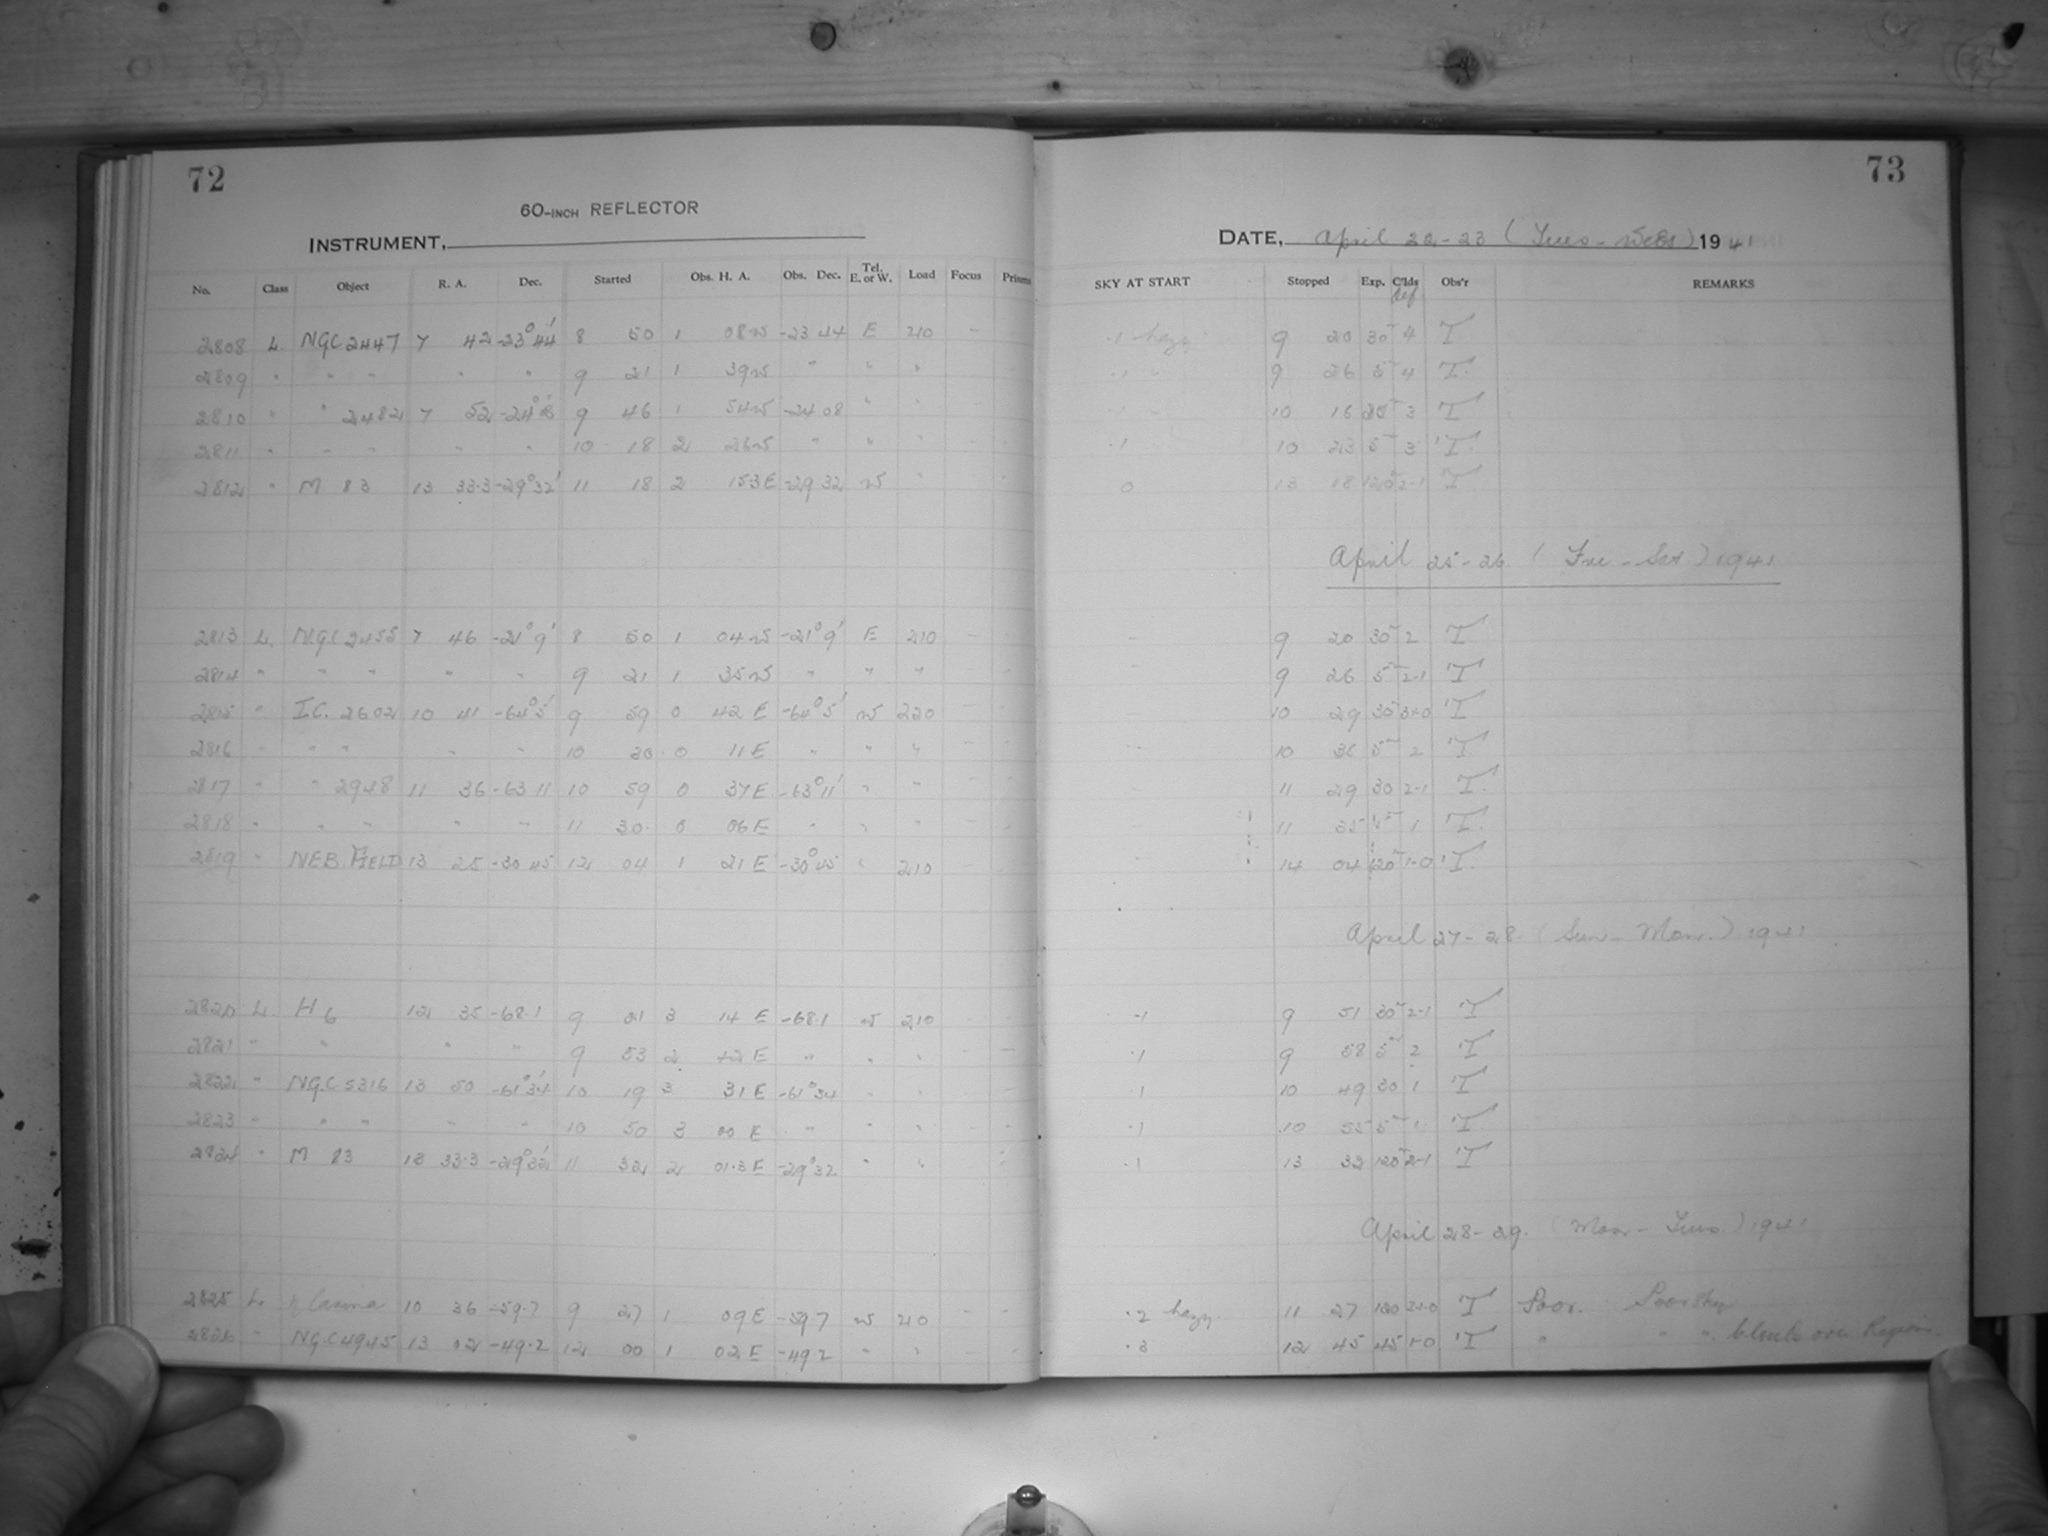 72
73
60-INCH REFLECTOR
INSTRUMENT,
DATE, April 22-23 (Tues-Weds) 1941
No. Class Object R. A. Dec. Started Obs. H. A. Obs. Dec. Tel. E. or W. Load Focus Prisms SKY AT START Stopped Exp. C'lds Obs'r REMARKS
2808 L NGC 2447 7 42 -23°44' 8 50 1 08 W -23 44 E 210 - .1 hazy 9 20 30 4 T
2809 " " " " " 9 21 1 39 W " " " .1 " 9 26 5 4 T
2810 " " 2482 7 52 -24°08' 9 46 1 54 W -24 08 " " .1 10 16 30 3 T
2811 " " " " " 10 18 2 26 W " " " .1 10 23 5 3 T
2812 " M 83 13 33.3 -29°32' 11 18 2 15.3 E -29 32 W " 0 13 18 120 2-1 T
April 25-26 (Fri-Sat) 1941
2813 L. NGC 2455 7 46 -21°9' 8 50 1 04 W -21°9' E 210 - 9 20 30 2 T
2814 " " " " " 9 21 1 35 W " " " 9 26 5 2-1 T
2815 " I.C. 2602 10 41 -64°5' 9 59 0 42 E -64°5' W 220 10 29 30 T
2816 " " " " " 10 30 0 11 E " " " 10 36 5 2 T
2817 " " 2948 11 36 -63 11 10 59 0 37 E -63°11' " " 11 29 30 2-1 T
2818 " " " " " 11 30 0 06 E " " " 11 35 5 1 T
2819 " NEB. FIELD 13 25 -30 45 12 04 1 21 E -30°45 " 210 14 04 120 1-0 T
April 27-28 (Sun-Mon.) 1941
2820 L. H 6 12 35 -68.1 9 21 3 14 E -68.1 W 210 .1 9 51 30 2-1 T
2821 " " " " 9 53 2 42 E " " " .1 9 58 5 2 T
2822 " NGC 5316 13 50 -61°34' 10 19 3 31 E -61°34 " " .1 10 49 30 1 T
2823 " " " " " 10 50 3 00 E " " " .1 10 55 5 1 T
2824 " M 83 13 33.3 -29°32' 11 32 2 01.3 E -29°32 " " .1 13 32 120 2-1 T
April 28-29. (Mon-Tues.) 1941
2825 L. η Carina 10 36 -59.7 9 27 1 09 E -59.7 W 210 - - .2 hazy 11 27 120 T Poor. Poor Sky
2826 " NGC 4945 13 02 -49.2 12 00 1 02 E -49.2 " " .3 12 45 45 1-0 T " " " clouds over Region